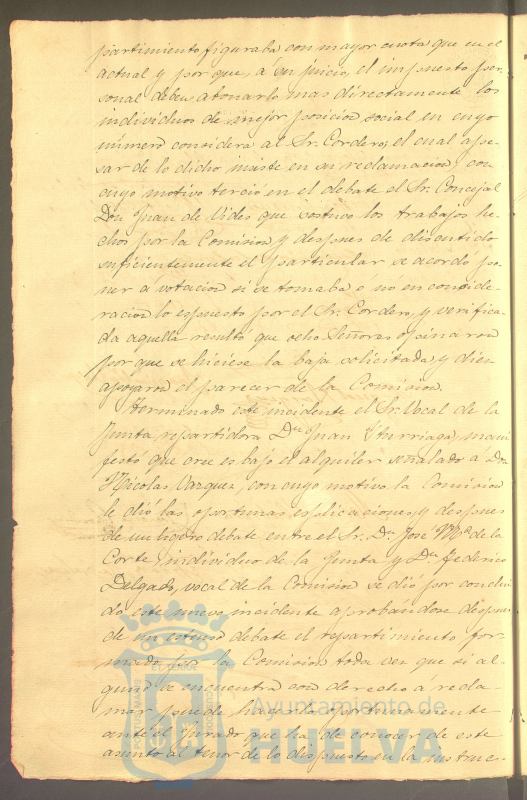 partimiento figuraba con mayor cuota que en el
actual y por que, á su juicio, el impuesto per-
sonal deben abonarlo mas directamente los
individuos de mejor posicion social en cuyo
número considera al Sr. Cordero; el cual ape-
sar de lo dicho insiste en su reclamacion, con
cuyo motivo terció en el debate el Sr. Concejal
Don Juan de Vides que sostuvo los trabajos he-
chos por la Comision y despues de discutido
suficientemente el particular se acordó po-
ner a votacion si se tomaba o no en conside-
racion lo espuesto por el Sr. Cordero, y verifica-
da aquella resultó que ocho Señores opinaron
por que se hiciese la baja solicitada y diez
apoyaron el parecer de la Comision.
Terminado este incidente el Sr. Vocal de la
Junta repartidora Dn. Juan Yturriaga, mani
festó que cree es bajo el alquiler señalado á Don
Nicolas Vazquez, con cuyo motivo la Comision
le dió las oportunas esplicaciones, y despues
de un ligero debate entre el Sr. Dn. José Ma. de la
Corte, individuo de la Junta y Dn. Federico
Delgado, vocal de la Comision se dió por conclui
do este nuevo incidente aprobandose despues
de un estenso debate el repartimiento for-
mado por la Comision toda vez que si al-
guno se encuentra con derecho á recla-
mar puede hacerlo oportunamente
ante el Jurado que ha de conocer de este
asunto al tenor de lo dispuesto en la instruc-
Ayuntamiento de
HUELVA